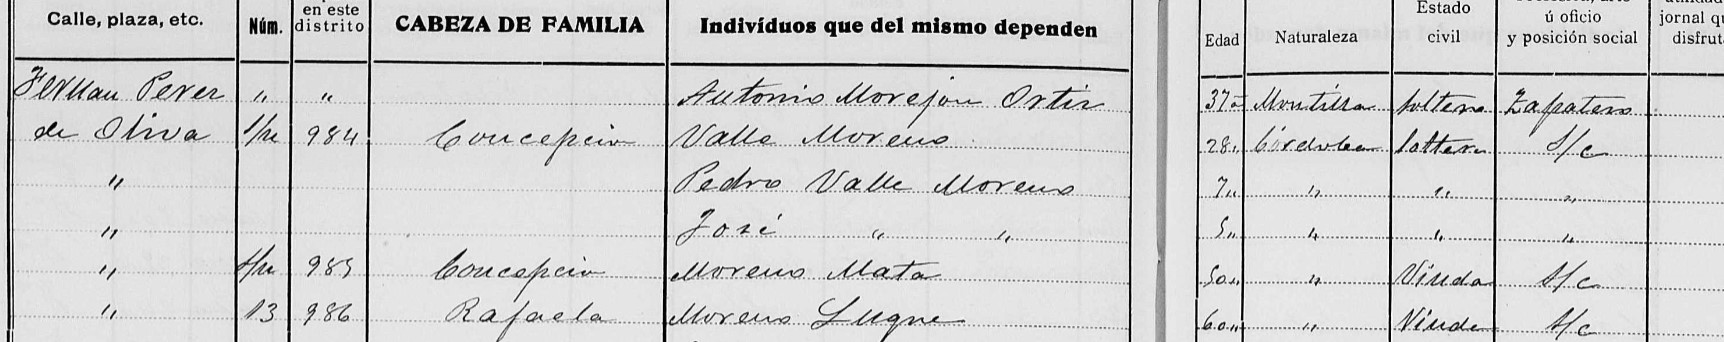 Calle, plaza, etc. Núm. en este distrito CABEZA DE FAMILIA Indivíduos que del mismo dependen Edad Naturaleza Estado civil ú oficio y posición social jornal qu disfrut
Fernan Perez " " Antonio Morejon Ortiz 37 " Montilla soltero Zapatero
de Oliva S/n 984 Concepcion Valle Moreno 28 " Córdoba Soltera S/c
" Pedro Valle Moreno 7 " " " "
" José " " 5 " " " "
" S/n 985 Concepcion Moreno Mata 50 " " Viuda S/c
" 13 986 Rafaela Moreno Luque 60 " " Viuda S/c